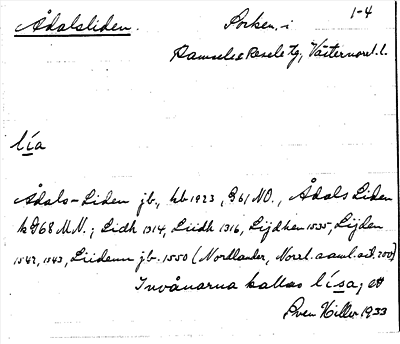 1-4
Ådalsliden. Socken i
Ramsele & Resele tg, Västernorrl. l.
lía
Ådals-Liden jb., kb 1923, G 61 NO., Ådals Liden
k 68 M.N.; Lidh 1314, Liidh 1316, Lijdhen 1535, Lijden
1542, 1543, Liidenn jb. 1550 (Nordlander, Norrl. saml. sid. 200)
Invånarna kallas lísa,
Sven Hiller 1933